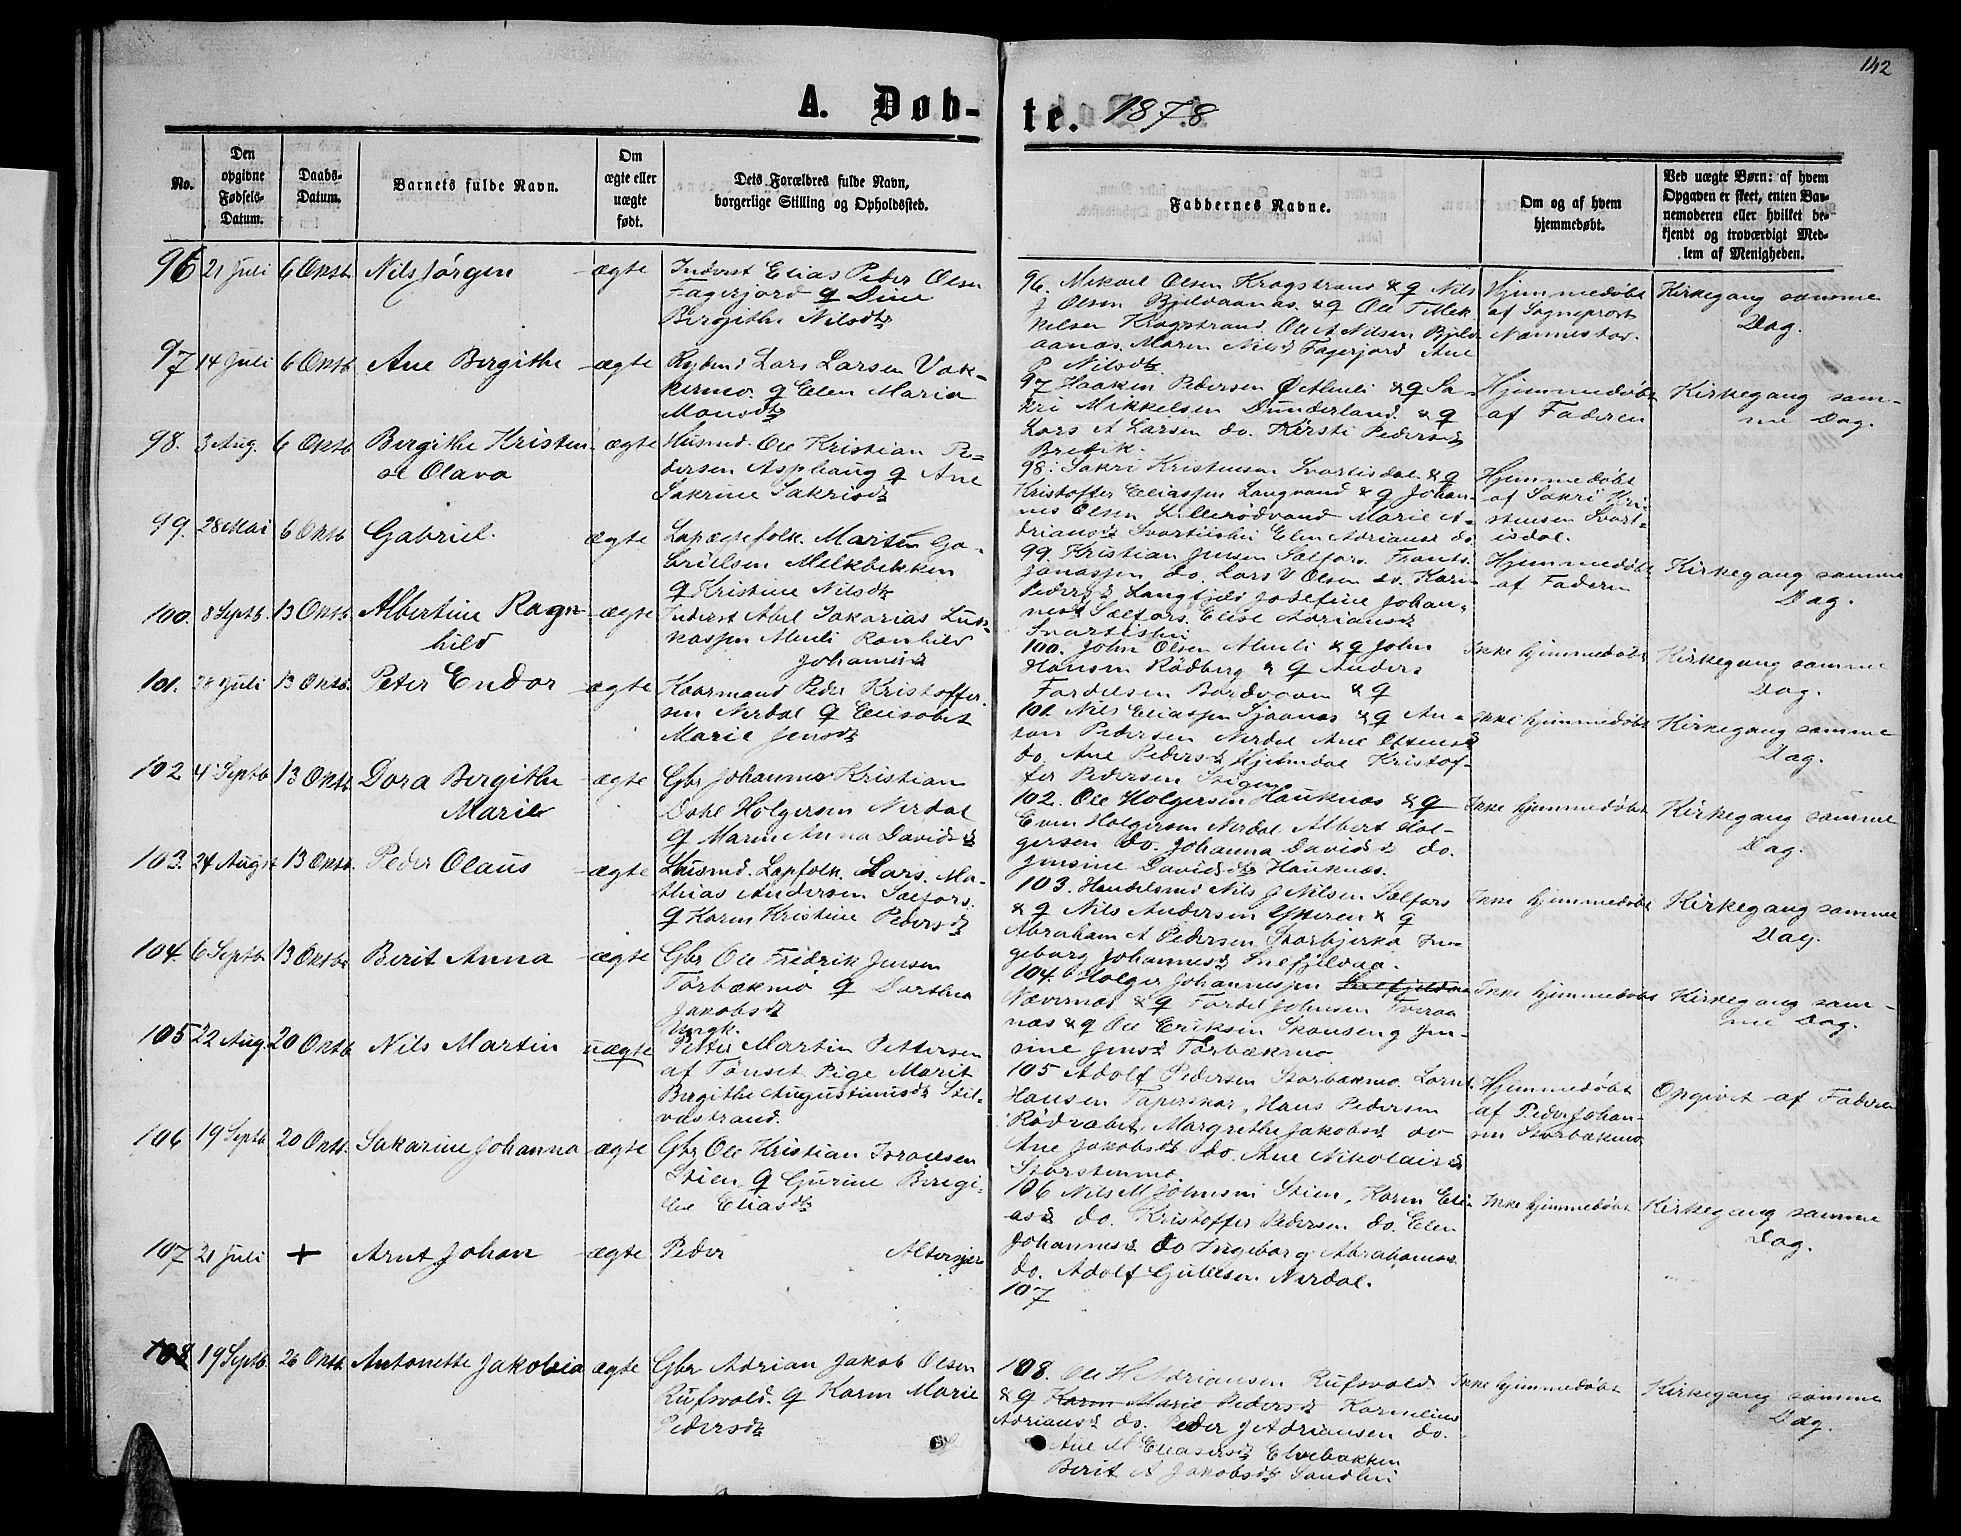 142
A. Døbte. 1878
No.
Den opgivne Fødsels-Datum.
Daabs-Datum.
Barnets fulde Navn.
Om ægte eller uægte født.
Dets Forældres fulde Navn, borgerlige Stilling og Opholdssted.
Faddernes Navne.
Om og af hvem hjemmedøbt.
Ved uægte Børn: af hvem Opgaven er skeet, enten Barnemoderen eller hvilket bekjendt og troværdigt Medlem af Menigheden.
96 21 Juli 6 Oktb. Nils Jørgen ægte Inderst Elias Peder Olsen
Fagerjord q Dine
Birgithe Nilsdtr
96. Mikael Olsen Kragstrand & q Nils
J Olsen Bjeldaanas & q Ole T Mik
kelsen Kragstrand Ole A Nilsen Bjeld
aanas. Maren Nilsd Fagerjord Ane
P Nilsdtr
Hjemmedøbt
af Sogneprest
Nannestad.
Kirkegang samme
Dag.
97 14 Juli 6 Oktb Ane Bergithe ægte Lars Larsen
q Elen Maria
Monsdtr
97 Haaken Pedersen Ø Almli & q Sa-
kri Mikkelsen Dunderland & q
Lars A Larsen do. Kirsti Pedersd
Bredik.
Hjemmedøbt
af Faderen
Kirkegang sam-
me Dag.
98. 3 Aug. 6 Oktb Bergithe Kristin-
e Olava ægte Husmd. Ole Kristian Pe-
dersen Asphaug q Ane
Sakrine Sakrisdtr
98. Sakri Kristensen Svartisdal & q
Kristoffer Eliassen Langvand & q Johan-
nes Olsen Lillerødvand Marie A-
driansd Svartishei Elen Adriansd do
Hjemmedøbt
af Sakri Kri-
stensen Svart-
isdal.
99. 28 Mai 6 Oktb Gabriel. ægte Lapægtefolk. Martin Ga-
brielsen Melkbekken
q Kristine Nilsdtr
99 Kristian Jensen Selfors. Frants
Jonassen do. Lars V Olsen do. Karn
Pedersd Langfjeld Josefine Johan-
nesd Selfors. Elise Adriansd
Svartishei
Hjemmedøbt
af Faderen
Kirkegang samme
Dag.
100. 8 Septb. 13 Oktb Albertine Ragn-
hild ægte Inderst Abel Sakarias Luk-
kassen Almli Ranhild
Johannesd
100. John Olsen Almli & q John
Hansen Rødberg & q Anders
Fordelsen Bordvaan & q
Ikke hjemmedøbt
Kirkegang samme
Dag.
101. 28 Juli 13 Oktb. Peter Endor ægte Kaarmand Peder Kristoffer
sen Nerdal q Elisabet
Marie Jensdtr
101. Nils Eliassen Sjaanas & q An-
ton Pedersen Nerdal Ane
do. Ane Pedersd Hjemdal Kristof-
fer Pedersen Stigen
Ikke hjemmedøbt
Kirkegang samme
Dag.
102 4 Septb 13 Oktb. Dora Bergithe
Marie ægte Gbr Johannes Kristian
Dahl Holgersen Nerdal
q Maren Anna Davidsd
102. Ole Holgersen Hauknas & q
Even Holgersen Nerdal Albert Hol-
gersen do. Johanna Davidsd do.
Jensine Davidsdtr Hauknas.
Ikke hjemmedøbt
Kirkegang samme
Dag.
103. 24 Augst 13 Oktb. Peder Olaus ægte Husmd. Lapfolk. Lars. Ma-
thias Andersen Selfors.
q Karen Kristine Pedersdtr
103. Handelsmd Nils J Nilsen Selfors
& q Nils Andersen Ytteren & q
Abraham A Pedersen Storbjerka In-
geborg Johannesd Snefjeldaa.
Ikke hjemmedøbt
Kirkegang samme
Dag.
104. 6 Septb. 13 Oktbr Berit Anna ægte Gbr Ole Fredrik Jensen
Tørbækmo q Dorthea
Jakobsdtr
104. Holger Johannessen Snefjeldaa
Nævernæs & q Fordel Johnsen Tveraa
næs & q Ole Eriksen Skansen q Jen-
sine Jensd Tørbækmo
Ikke hjemmedøbt
Kirkegang sam-
me Dag.
105 22 Aug. 20 Oktb Nils Martin uægte Ungk.
Petter Martin Pettersen
af Tønset Pige Marit
Bergithe Augustinusdtr Stil-
vastrand.
105 Adolf Pedersen Storbækmo. Lornt
Hansen Taperskar, Hans Pedersen
Rødvabet Margrethe Jakobsd do
Ane Jakobsdtr do. Ane Nikolaisd
Storstenmo
Hjemmedøbt
af Peder Johan-
sen Storbækmo
Opgivet af Faderen
106 19 Septb 20 Oktb. Sakarine Johanna ægte Gbr Ole Kristian Israelsen
Stien q Gurine Birgi-
the Eliasdtr
106 Nils M Johnsen Stien, Karen Eli-
asd do. Kristoffer Pedersen do. Elen
Johannesd do Ingeborg Abrahamsd
do. Adolf Gullesen Nerdal.
Ikke hjemmedøbt
Kirkegang samme
Dag.
107 21 Juli + Arnt Johan ægte Peder Altersjer
107
108 19 Septb. 26 Oktb. Antonette Jakobia ægte Gbr Adrian Jakob Olsen
Rufsvold. q Karen Marie
Pedersdtr
108. Ole H Adriansen Rufsvold.
& q Karen Marie Pedersd Kornelius
Adriansd do. Peder J Adriansen do.
Ane M Eliasersdtr Elvebakken
Berit A Jakobsdtr Sandhei
Ikke hjemmedøbt
Kirkegang samme
Dag.